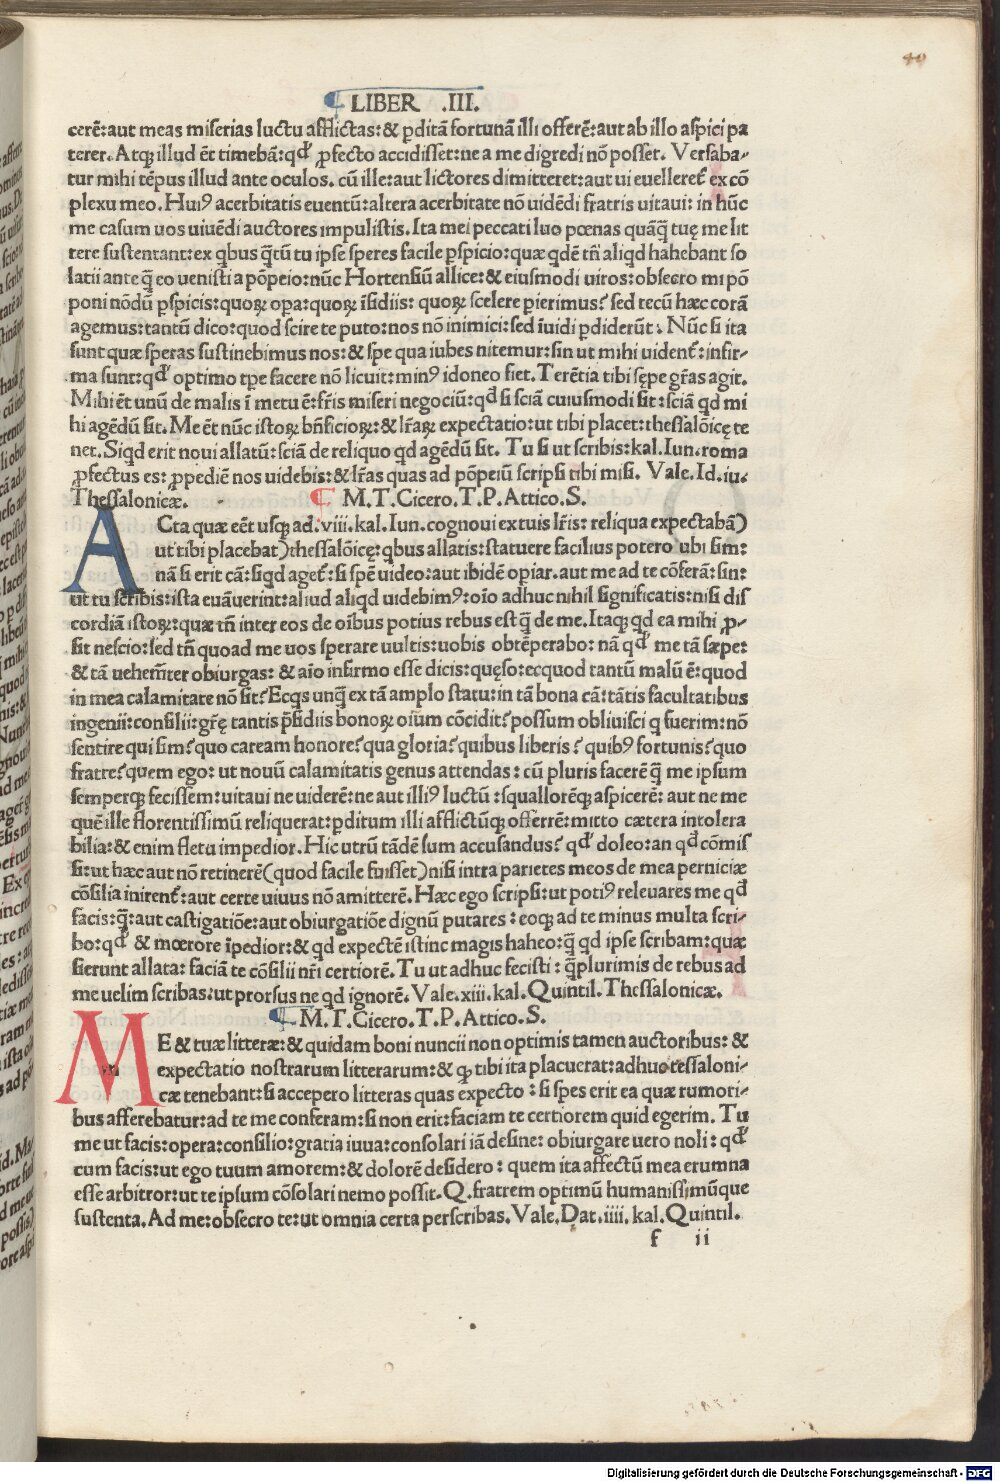 49
LIBER .III.
cerē:aut meas miserias luctu afflictas:& ꝑditā fortunā illi offerē:aut ab illo aspici pa
terer. Atqꝫ illud ēt timebā:qđ ꝓfecto accidisset:ne a me digredi nō posset. Versaba-
tur mihi tēpus illud ante oculos. cū ille:aut lictores dimitteret:aut ui euelleret̄ ex cō
plexu meo. Huiꝰ acerbitatis euentū:altera acerbitate nō uidēdi fratris uitaui: in hūc
me casum uos uiuēdi auctores impulistis. Ita mei peccati luo pœnas quāq̄ tuę me lit
teræ sustentant:ex qbus q̄tū tu ipse speres facile ꝑspicio:quæ qdē tn̄ aliqd hahebant so
latii ante q̄ eo uenisti a pōpeio:nūc Hortensiū allice:& eiusmodi uiros: obsecro mi pō
poni nōdū ꝑspicis:quoꝝ opa:quoꝝ īsidiis: quoꝝ scelere ꝑierimus? sed tecū hæc corā
agemus:tantū dico:quod scire te puto:nos nō inimici:sed īuidi ꝑdiderūt. Nūc si ita
sunt quæ speras sustinebimus nos:& spe qua iubes nitemur:sin ut mihi uident̄:infir-
ma sunt:qđ optimo tpe facere nō licuit:minꝰ idoneo fiet. Terētia tibi sępe gr̄as agit.
Mihi ēt unū de malis ī metu ē:fr̄is miseri negociū:qđ si sciā cuiusmodi sit:sciā qd mi
hi agēdū sit. Me ēt nūc istoꝝ bn̄ficioꝝ:& lr̄aꝝ expectatio:ut tibi placet:thessalōicę te
net. Siqd erit noui allatū:sciā de reliquo qd agēdū sit. Tu si ut scribis:kal.Iun.roma
ꝓfectus es:ꝓpediē nos uidebis:& lr̄as quas ad pōpeiū scripsi tibi misi. Vale.Id.iu.
Thessalonicæ. M.T.Cicero.T.P.Attico.S.
ACta quæ eēt usqꝫ ad.viii.kal.Iun.cognoui ex tuis lr̄is: reliqua expectabā)
ut tibi placebat)thessalōicę:qbus allatis:statuere facilius potero ubi sim:
nā si erit cā:siqd aget̄:si spē uideo:aut ibidē opiar.aut me ad te cōferā:sin:
ut tu scribis:ista euāuerint:aliud aliqd uidebimꝰ:oīo adhuc nihil significatis:nisi dis
cordiā istoꝝ:quæ tn̄ inter eos de oībus potius rebus est q̄ de me.Itaqꝫ qd ea mihi ꝓ-
sit nescio:sed tn̄ quoad me uos sperare uultis:uobis obtēperabo: nā qđ me tā sæpe:
& tā uehemr̄ter obiurgas: & aīo infirmo esse dicis: quęso:ecquod tantū malū ē:quod
in mea calamitate nō sit? Ecqs unq̄ ex tā amplo statu:in tā bona cā:tātis facultatibus
ingenii:consilii:gr̄ę tantis p̄sidiis bonoꝝ oīum cōcidit? possum obliuisci q fuerim:nō
sentire qui sim? quo caream honore? qua gloria? quibus liberis? quibꝰ fortunis? quo
fratre? quem ego: ut nouū calamitatis genus attendas: cū pluris facerē q̄ me ipsum
semperqꝫ fecissem:uitaui ne uiderē:ne aut illiꝰ luctū :squallorēqꝫ aspicerē: aut ne me
quē ille florentissimū reliquerat:ꝑditum illi afflictūqꝫ offerrē:mitto cætera intolera
bilia:& enim fletu impedior. Hic utrū tādē sum accusandus? qđ doleo:an qđ cōmis
si:ut hæc aut nō retinerē(quod facile fuisset)nisi intra parietes meos de mea perniciæ
cōsilia inirent̄:aut certe uiuus nō amitterē. Hæc ego scripsi:ut potiꝰ releuares me qđ
facis:q̄:aut castigatiōe:aut obiurgatiōe dignū putares : eoqꝫ ad te minus multa scri-
bo:qđ & mœrore īpedior:& qd expectē istinc magis haheo:q̄ qd ipse scribam:quæ
sierunt allata: faciā te cōsilii nr̄i certiorē. Tu ut adhuc fecisti : q̄plurimis de rebus ad
me uelim scribas:ut prorsus ne qd ignorē. Vale.xiii.kal.Quintil.Thessalonicæ.
M.T.Cicero.T.P.Attico.S.
ME & tuæ litteræ:& quidam boni nuncii non optimis tamen auctoribus: &
expectatio nostrarum litterarum:& qꝫ tibi ita placuerat:adhuc tessaloni-
cæ tenebant:si accepero litteras quas expecto : si spes erit ea quæ rumori-
bus afferebatur:ad te me conferam:si non erit:faciam te certiorem quid egerim. Tu
me ut facis:opera:consilio:gratia iuua:consolari iā desine: obiurgare uero noli : qđ
cum facis:ut ego tuum amorem:& dolorē desidero : quem ita affectū mea erumna
esse arbitror:ut te ipsum cōsolari nemo possit. Q.fratrem optimū humanissimūque
sustenta.Ad me:obsecro te:ut omnia certa perscribas.Vale.Dat.iiii.kal.Quintil.
f ii
Digitalisierung gefördert durch die Deutsche Forschungsgemeinschaft - DFG